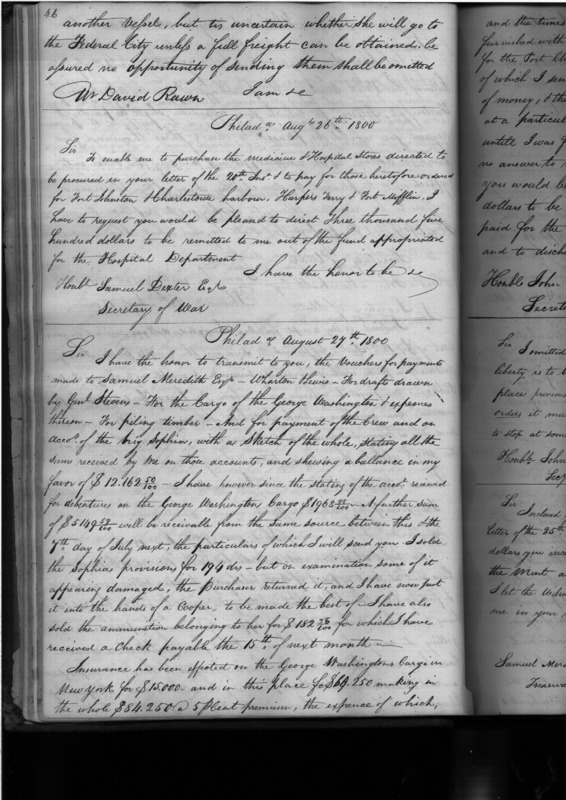 46
another Vessel, but tis uncertain whether she will go to
the Federal City unless a full freight can be obtained, be
assured no opportunity of sending them shall be omitted
Mr David Rawn I am &c
Philada Augt 26th 1800
Sir
To enable me to purchase the medicine & Hospital Stores directed to
be procured in your letter of the 20th Inst & to pay for those heretofore ordered
for Fort Johnston & Charlestown harbour, Harpers Ferry & Fort Mifflin, I
have to request you would be pleased to direct Three thousand five
hundred dollars to be remitted to me out of the fund appropriated
for the Hospital Department
I have the honor to be &c
Honbl Samuel Dexter Esqr
Secretary of War
Philada August 27th 1800
Sir
I have the honor to transmit to you, the Vouchers for payments
made to Samuel Meredith Esqr - Wharton - For draft drawn
by Genl Stevens - For the Cargo of the George Washington & expenses
thereon - For piling timber - And for payment of the Crew and on
accot of the brig Sophia, with a Sketch of the whole, stating all the
sum received by me on those accounts, and shewing a ballance in my
favor of $12.162 50/100 - I have however since the stating of the accot received
for debentures on the George Washingtons Cargo $1963 A further sum
of $5149 will be receivable from the same source between this & the
7th day of July next, the particulars of which I will send you. I sold
the Sophias provisions for 194 drs - but on examination some of it
appearing damaged, the Purchaser returned it, and I have now put
it into the hands of a Cooper, to be made the best of. I have also
sold the ammunition belonging to her for $182 for which I have
received a Check payable the 15th of next month -
Insurance has been effected on the George Washingtons Cargo in
New York for $15.000 - and in this place for $69.250 making in
the whole $84.250 a 5 P Cent premium, the expence of which,
and the times
furnished with
for the Fort
of which I sen
of money, & th
at a particul
untill I was
no answer to
you would be
dollars to be
paid for the
and to disch
Honble John
Secreta
Sir I omitted
liberty is to
place previous
orders it mu
to stop at som
Honble John
Secy
Sir Inclosed
letter of the 25th
dollars you
the Mint a
I let the
me in your
Samuel Mere
Treasurer